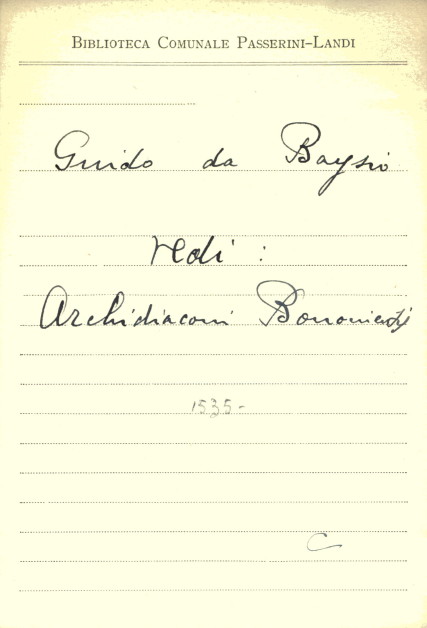 BIBLIOTECA COMUNALE PASSERINI-LANDI
Guido da Baysio
Vedi :
Archidiaconi Bononiensis
1535-
C